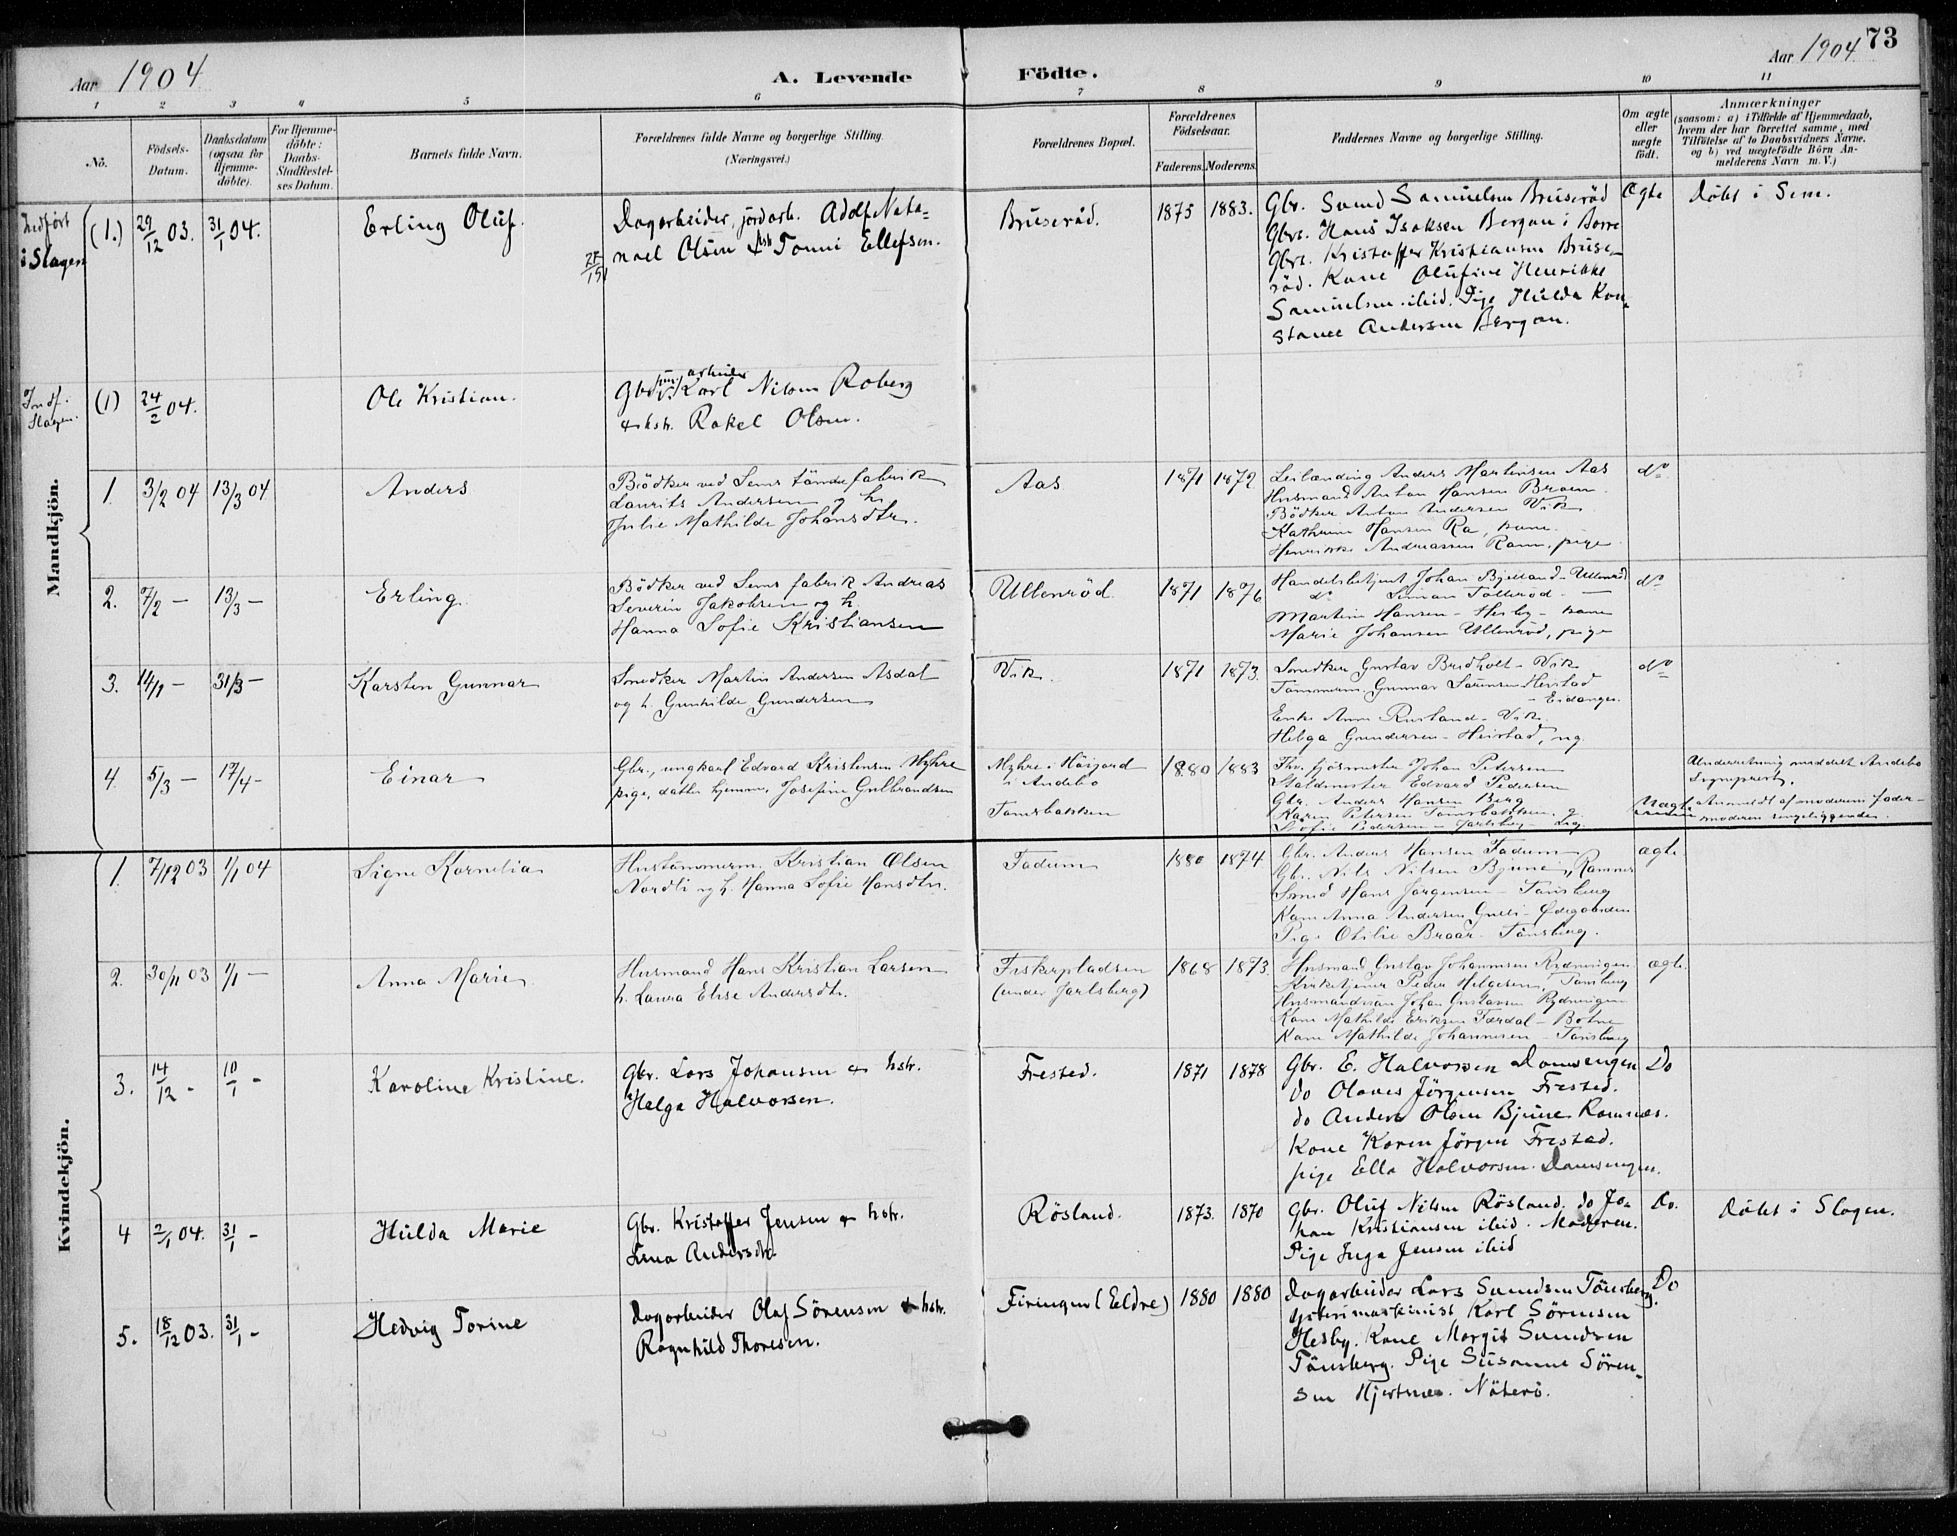 Aar 1904
A. Levende Födte.
Aar 1904
73
1 2 3 4 5 6 7 8 9 10 11
No.
Födsels-
Datum.
Daabsdatum
(ogsaa for
Hjemme-
döbte).
For Hjemme-
döbte:
Daabs-
Stadfæstel-
ses Datum.
Barnets fulde Navn.
Forældrenes fulde Navne og borgerlige Stilling.
(Næringsvei.)
Forældrenes Bopæl.
Forældrenes
Födselsaar.
Faderens.
Moderens.
Faddernes Navne og borgerlige Stilling.
Om ægte
eller
uægte
födt.
Anmærkninger
(saasom: a) i Tilfælde af Hjemmedaab,
hvem der har forrettet samme, med
Tilföielse af to Daabsvidners Navne.
og b) ved uægtefödte Börn An-
melderens Navn m. V.)
Mandkjön.
Indført
i Slagen
(1.)
29/12 03.
31/1 04.
Erling Oluf.
Dagarbeider, jordarb. Adolf Nata-
nael Olsen & hst. Tomi Ellefsen.
Bruseröd.
1875
1883.
Gbr. Samd Samuelsen Bruseröd
Gbrs. Hans Isaksen Bergan i Borre
Gbrs. Kristoffer Kristiansen Bruse-
röd. Kone Olufine Henrikke
Samuelsen ibid. Pige Hulda Kon-
stance Andersen Bergan.
Ægte
Döbt i Sem.
Indf.
Slagen.
(1)
24/2 04.
Ole Kristian.
arbeider
Karl Nilsen Roberg
& hstr. Rakel Olsen.
1.
3/2 04
13/3 04
Anders
Bödker ved Sems töndefabrik
Laurits Andersen og h.
Julie Mathilde Johansdtr.
Aas
1871
1872
Leilænding Anders Martinsen Aas
Husmand Anton Hansen Braen
Bödker Anton Andersen Vik
Kathrine Hansen Ra, kone
Henrikke Andreassen Ramn, pige
do
2.
7/2 —
13/3 —
Erling
Bödker ved Sems fabrik Andreas
Severin Jakobsen og h.
Hanna Sofie Kristiansen
Ullenröd
1871
1876
Handelsbetjent Johan Bjelland - Ullenröd
do Simon Tolleröd —
Martine Hansen - Hesby - kone
Marie Johansen Ullenröd, pige
do
3.
14/1 —
31/3 —
Karsten Gunnar
Snedker Martin Andersen Asdal
og h. Gunhilde Gundersen
Vik.
1871
1873.
Snedker Gustav Bredholt - Vik
Tömmerm. Gunnar Sörensen Heistad
- Eidanger.
Enke Anne Rusland - Vik
Helga Gundersen - Heistad, ug.
do
4
5/3 —
17/4 -
Einar
Gbr., ungkarl Edvard Kristensen Myhre
pige, datter hjemme, Josefine Gulbrandsen
Myhre i Höigard
i Andebo
Tamsbakken
1880
1883
Fhv. fjösmester Johan Pedersen
Staldmester Edvard Pedersen
Gbr. Anders Hansen Berg
Karen Petersen Tamsbakken, g.
Sofie Pedersen - Jarlsberg - ug.
Uægte
Underretning meddelt Andebo
Sogneprest.
Anmeldt af moderens fader -
moderen sengeliggende.
Kvindekjön.
1.
7/12 03
1/1 04
Signe Kornelia
Hustömmerm. Kristian Olsen
Nordli og h. Hanna Sofie Hansdtr.
Fadum
1880
1874
Gbr. Anders Hansen Fadum
Gbr. Nils Nilsen Bjune, Ramnes
Smed Hans Jörgensen - Tönsberg
Kone Anna Andersen Gulli - Ödegaarden
Pige Otilie Braar - Tönsberg.
ægte
2.
30/11 03
1/1 —
Anna Marie
Husmand Hans Kristian Larsen
h. Laura Elise Andersdtr.
Fiskerpladsen
(under Jarlsberg)
1868
1873.
Husmand Gustav Johannesen Rydningen
Kirketjener Peder Helgesen, Tönsberg
Husmandssön Johan Gustavsen Rydningen
Kone Mathilde Eriksen Tærdal - Botne
Kone Mathilde Johannesen - Tönsberg
ægte.
3.
14/12 -
10/1 -
Karoline Kristine.
Gbr. Lars Johansen & hstr.
Helga Halvorsen.
Frested.
1871
1878
Gbr. E. Halvorsen Damsengen
do Olaves Jörgensen Frested.
do Anders Olsen Bjune Ramnes.
Kone Karen Jörgen Frestad.
pige Ella Halvorsen Damsengen.
Do
4
2/1 04.
31/1 -
Hulda Marie
Gbr. Kristoffer Jensen & hstr.
Lina Andersdtr.
Rösland.
1873.
1870
Gbr. Oluf Nilsen Rösland. do Jo-
han Kristiansen ibid. Moderen.
Pige Inga Jensen ibid
Do.
Döbt i Slagen.
5.
18/12 03.
31/1 -
Hedvig Torine
Dagarbeider Olaf Sörensen & hstr.
Ragnhild Thoresen.
Firingen (Eldre)
1880
1880
Dagarbeider Lars Samdsen Tönsberg.
Karl Sörensen
Hesby. Kone Margit Samdsen
Tönsberg. Pige Susanne Sören-
sen Hjertnes. Nöterö.
Do